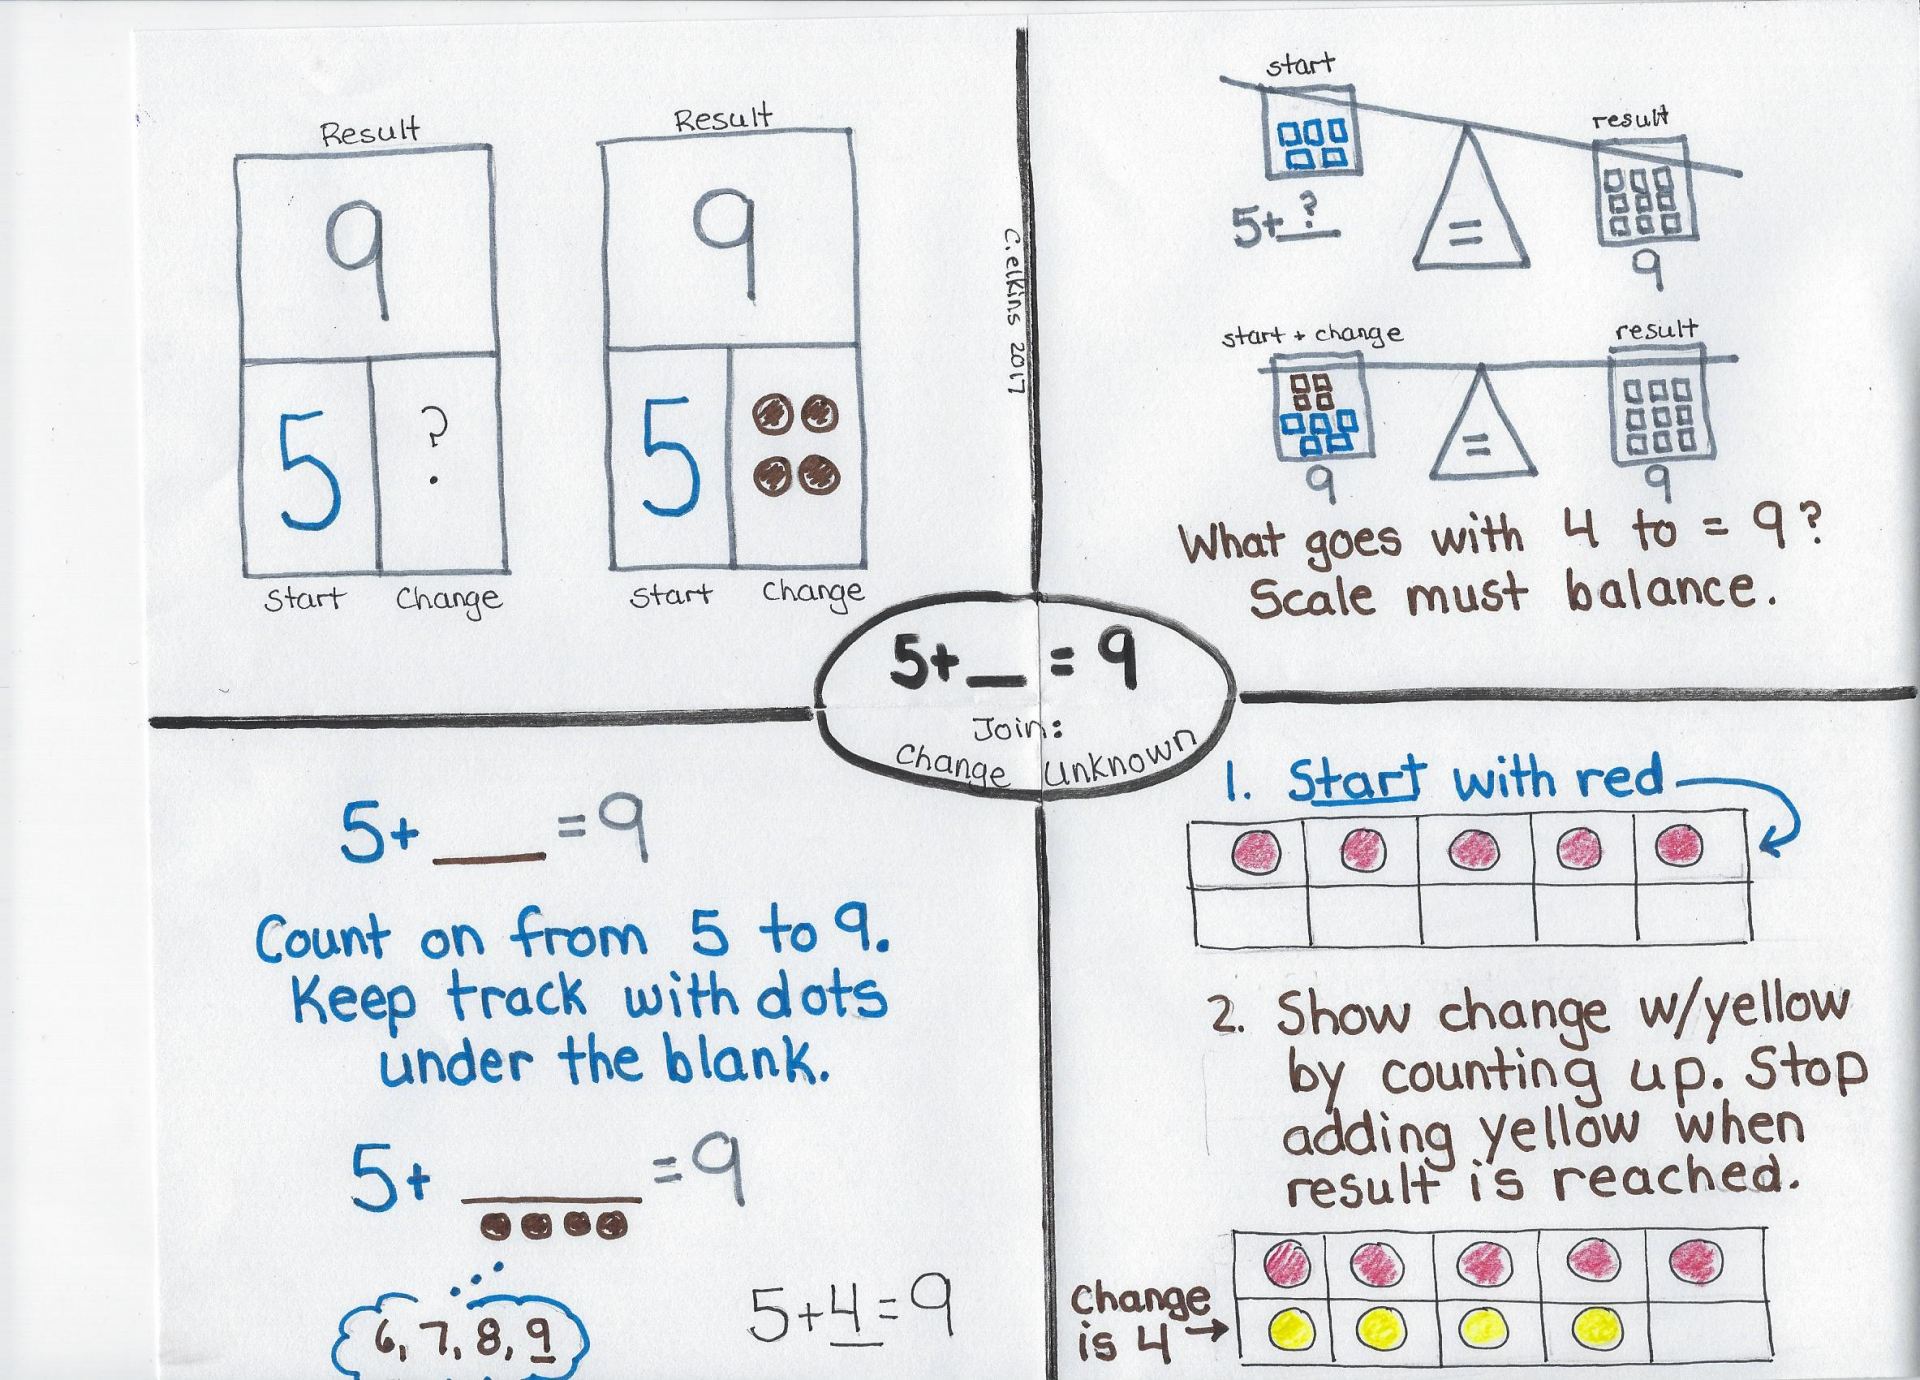 Result
9
5 ?
Start Change
Result
9
5
Start Change
C. elkins 2017
start
result
5+ ?
=
9
start + change
result
=
9
9
What goes with 4 to = 9?
Scale must balance.
5+__ = 9
Join:
Change Unknown
5+ ___ = 9
Count on from 5 to 9.
Keep track with dots
under the blank.
5+ ____ = 9
6, 7, 8, 9
5+4=9
1. Start with red
2. Show change w/yellow
by counting up. Stop
adding yellow when
result is reached.
Change
is 4 →